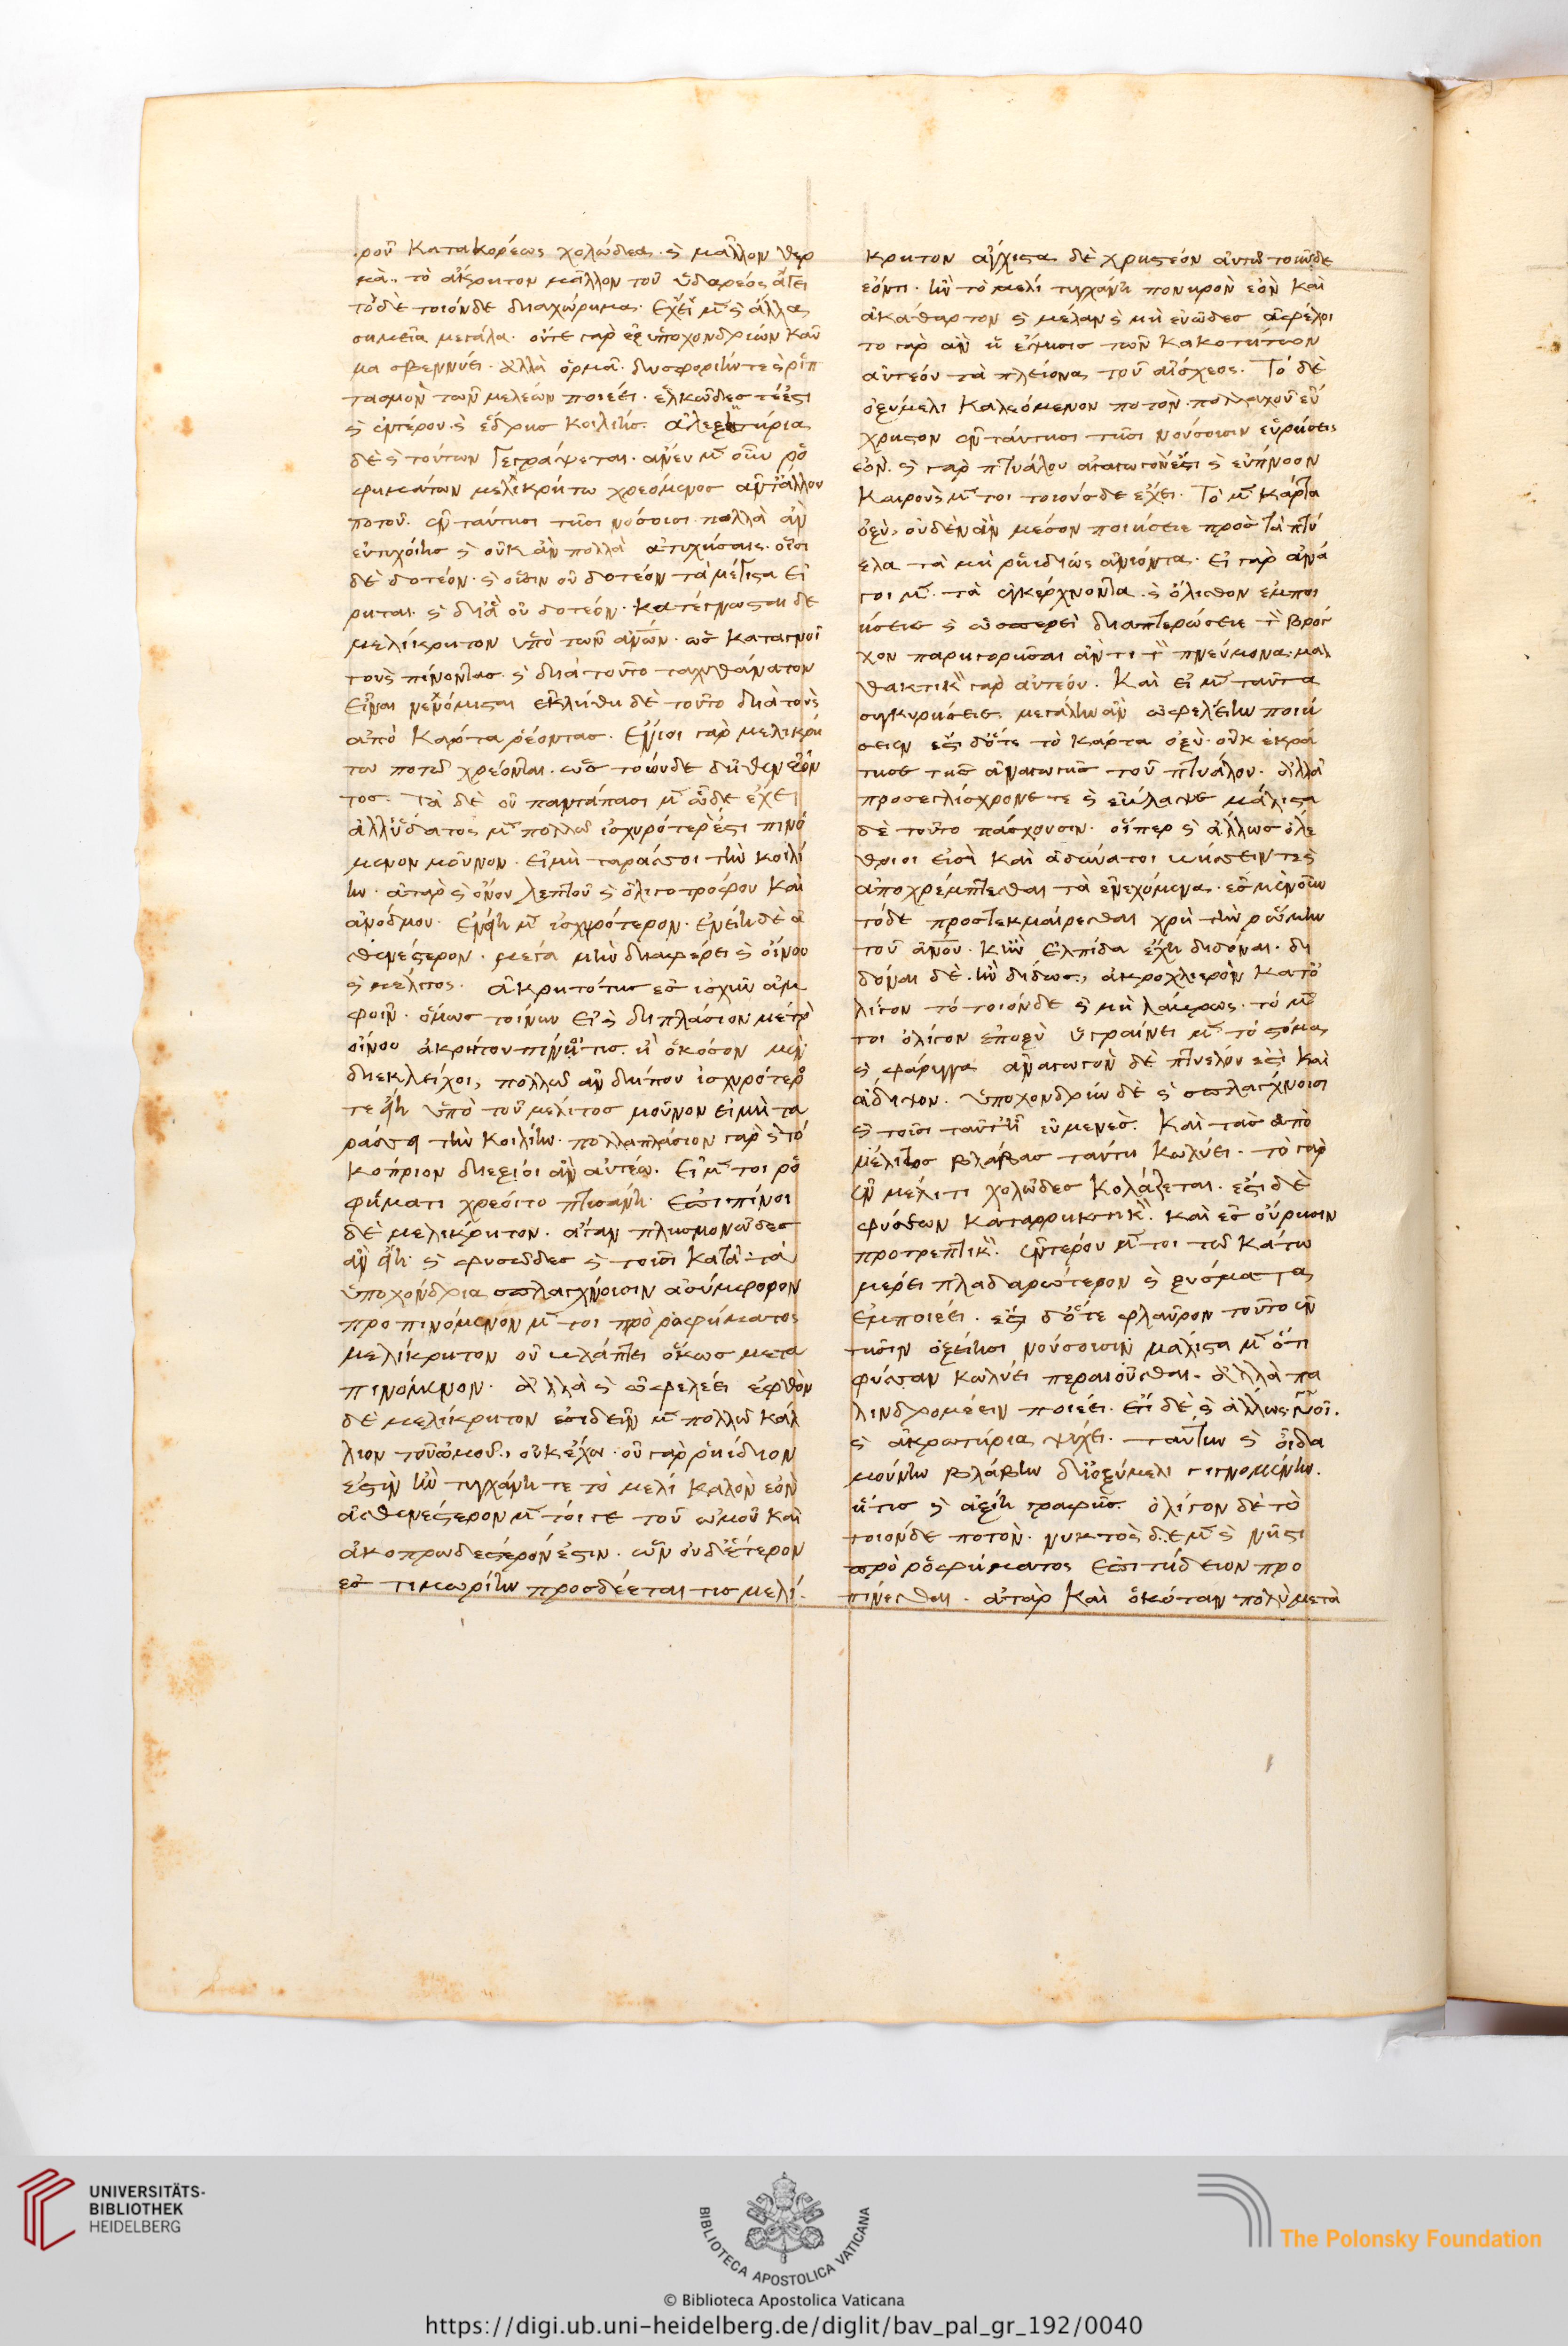 ροῦ κατακορέως χολώδεα. ϛ̀ μᾶλλον θερ
μά. τὸ ἄκρητον μᾶλλον τοῦ ὑδαρέος ἄγει
τόδε τοιόνδε διαχώρημα. ἔχει μ̅ ϛ̀ ἄλλα
σημεῖα μεγάλα. οὔτε γὰρ ἐξ ὑποχονδρίων καῦ
μα σβεννύει. ἀλλὰ ὁρμᾶ. δυσφορίην τε ϛ̀ ῥιπ
τασμὸν τῶν μελέων ποιέει. ἑλκῶδες τέ ἐστι
ϛ̀ ἐντέρου. ϛ̀ ἕδρης κοιλίης. ἀλεξητήρια
δὲ ϛ̀ τούτων γεγράψεται. ἄνευ μ̅ οὖν ῥο
φημάτων μελικρήτω χρεόμενος ἀντ' ἄλλου
ποτοῦ. ἐν ταύτησι τῆσι νόσοισι πολλὰ ἂν
εὐτυχοίης ϛ̀ οὐκ ἂν πολλὰ ἀτυχήσαις. οἷσι
δὲ δοτέον. ϛ̀ οἷσιν οὐ δοτέον τὰ μέγιστα εἴ
ρηται. ϛ̀ δι' ἃ οὐ δοτέον. κατέγνωσται δὲ
μελίκρητον ὑπὸ τῶν ἀν̅ων. ὡς καταγυιοῖ
τοὺς πίνοντας. ϛ̀ διὰ τοῦτο ταχυθάνατον
εἶναι νενόμισται ἐκλήθη δὲ τοῦτο διὰ τοὺς
ἀπὸ καρτα ῥέοντας. ἔνιοι γὰρ μελικρή
τω ποτῶ χρέονται. ὡς τοιοῦδε δῆθεν ἐόν
τος. τὰ δὲ οὐ παντάπασι μ̅ ὧδε ἔχει
ἀλλ' ὕδατος μ̅ πολλῶ ἰσχυρότερ' ἐστὶ πινό
μενον μοῦνον. εἰ μὴ ταράσσοι τὴν κοιλί
ην. ἀτὰρ ϛ̀ οἴνου λεπτοῦ ϛ̀ ὀλιγοτρόφου καὶ
ἀνόδμου. ἐν ᾗ μ̅ ἰσχυρότερον. ἐν ᾗ δὲ ἀ
σθενέστερον. μέγα μὴν διαφέρει ϛ̀ οἴνου
ϛ̀ μέλιτος. ἀκρητότης ἐς ἰσχὺν ἀμ
φοῖν. ὅμως τοίνυν εἰ ϛ̀ διπλάσιον μέτρ
οἴνου ἀκρήτου πίνοι τις. ἢ ὁκόσον μέλι
διεκλείχοι, πολλῶ ἂν δήπου ἰσχυρότερο
τε εἴη ὑπὸ τοῦ μέλιτος μοῦνον εἰ μὴ τα
ράσσοι τὴν κοιλίην. πολλαπλάσιον γὰρ ϛ̀ τὸ
κόπριον διεξίοι ἂν αὐτέω. εἰ μ̅ τοι ῥο
φήματι χρέοιτο πτισάνη. ἐπιπίνοι
δὲ μελίκρητον. ἄγαν πλησμονῶδες
ἂν εἴη. ϛ̀ φυσῶδες ϛ̀ τοῖσι κατὰ τὰ
ὑποχόνδρια σπλάγχνοισιν ἀσύμφορον
προπινόμενόν μ̅ τοι πρὸ ῥοφήματος
μελίκρητον οὐ βλάπτει ὅκως μετα
πινόμενον. ἀλλὰ ϛ̀ ὠφελέει ἑφθὸν
δὲ μελίκρητον ἐσιδεῖν μ̅ πολλῶ κάλ
λιον τοῦ ὠμοῦ, οὐκ ἔχω. οὐ γὰρ ῥηίδιον
ἐστὶν ἢν τυγχάνη τε τὸ μέλι καλὸν ἐὸν
ἀσθενέστερον μ̅ τοί γε τοῦ ὠμοῦ καὶ
ἀκοπρωδέστερόν ἐστιν. ὧν οὐδέτερον
ἐς τιμωρίην προσδέεται τις μελί
κρητον ἄγχιστα δὲ χρηστέον αὐτῶ τοιῶδε
ἐόντι. ἢν τὸ μέλι τυγχάνη πονηρὸν ἐὸν καὶ
ἀκάθαρτον ϛ̀ μέλαν ϛ̀ μὴ εὐῶδες ἀφέλοι
το γὰρ ἂν ἡ ἕψησις τῶν κακοτήτων
αὐτέου τὰ πλείονα τοῦ αἴσχεος. Τὸ δὲ
ὀξύμελι καλεόμενον ποτὸν πολλαχοῦ εὔ
χρηστον ἐν ταύτησι τῆσι νούσοισιν εὑρήσεις
ἐόν. ϛ̀ γὰρ πτυάλου ἀναγωγόν ἐστι ϛ̀ εὔπνοον
καιροὺς μ̅ τοι τοιούσδε ἔχει. Τὸ μ̅ κάρτα
ὀξὺ, οὐδὲν ἂν μέσον ποιήσειε πρὸς τὰ πτύ
ελα τὰ μὴ ῥηιδίως ἀνιόντα. εἰ γὰρ ἀνά
γοι μ̅ τὰ ἐγκέρχνοντα. ϛ̀ ὄλισθον ἐμποι
ήσειε ϛ̀ ὥσπερεὶ διαπτερώσειε τ̀ βρόγ
χον παρηγορῆσαι ἄν τι τ̀ πνεύμονα. μαλ
θακτικ̀ γὰρ αὐτέου. Καὶ εἰ μ̅ ταῦτα
συγκυρήσειε. μεγάλην ἂν ὠφελείην ποιή
σειεν ἔστι δ' ὅτε τὸ κάρτα ὀξὺ οὐκ ἐκρά
τησε τῆς ἀναγωγῆς τοῦ πτυάλου. ἀλλὰ
προσεγλίσχρηνέ τε ϛ̀ ἔβλαψε μάλιστα
δὲ τοῦτο πάσχουσιν. οἵπερ ϛ̀ ἄλλως ὀλέ
θριοι εἰσὶ καὶ ἀδύνατοι βήσσειν τε ϛ̀
ἀποχρέμπτεσθαι τὰ ἐνεχόμενα. ἐς μὲν οὖν
τόδε προστεκμαίρεσθαι χρὴ τὴν ῥώμην
τοῦ ἀν̅ου. κἢν ἐλπίδα ἔχη διδόναι. δι
δόναι δὲ. ἢν διδῶς, ἀκροχλίερον κατ' ὀ
λίγον τὸ τοιόνδε ϛ̀ μὴ λάβρως. τό μ̅
τοι ὀλίγον ὕποξυ ὑγραίνει μ̅ τὸ στόμα
ϛ̀ φάρυγγα ἀναγωγὸν δὲ πτυέλου ἐστὶ καὶ
ἄδιψον. ὑποχονδρίων δὲ ϛ̀ σπλάγχνοισι
ϛ̀ τοῖσι ταύτη εὐμενές. Καὶ τὰς ἀπὸ
μέλιτος βλάβας ταύτη κωλύει. τὸ γὰρ
ἐν μέλιτι χολῶδες κολάζεται. ἔστι δὲ
φυσέων καταρρηκτικ̀. καὶ ἐς οὔρησιν
προτρεπτικ̀. ἐντέρου μ̅ τοι τῶ κάτω
μέρει πλαδαρώτερον ϛ̀ ξύσματα
ἐμποιέει. ἔστι δ' ὅτε φλαῦρον τοῦτο ἐν
τῆσιν ὀξείησι νούσοισιν μάλιστα μ̅ ὅτι
φύσαν κωλύει περαιοῦσθαι. ἀλλὰ πα
λινδρομέειν ποιέει. ἔτι δὲ ϛ̀ ἄλλως γυιοῖ.
ϛ̀ ἀκρωτήρια ψύχει. ταύτην ϛ̀ οἶδα
μούνην βλάβην δι' ὀξύμελι γιγνομένην.
ἥτις ϛ̀ ἀξίη γραφῆς. ὀλίγον δὲ τὸ
τοιόνδε ποτὸν. νυκτὸς δὲ μ̅ ϛ̀ νῆστι
πρὸ ῥοφήματος ἐπιτήδειον προ
πίνεσθαι. ἀτὰρ καὶ ὁκόταν πολὺ μετὰ
UNIVERSITÄTS-
BIBLIOTHEK
HEIDELBERG
BIBLIOTECA APOSTOLICA VATICANA
The Polonsky Foundation
© Biblioteca Apostolica Vaticana
https://digi.ub.uni-heidelberg.de/diglit/bav_pal_gr_192/0040